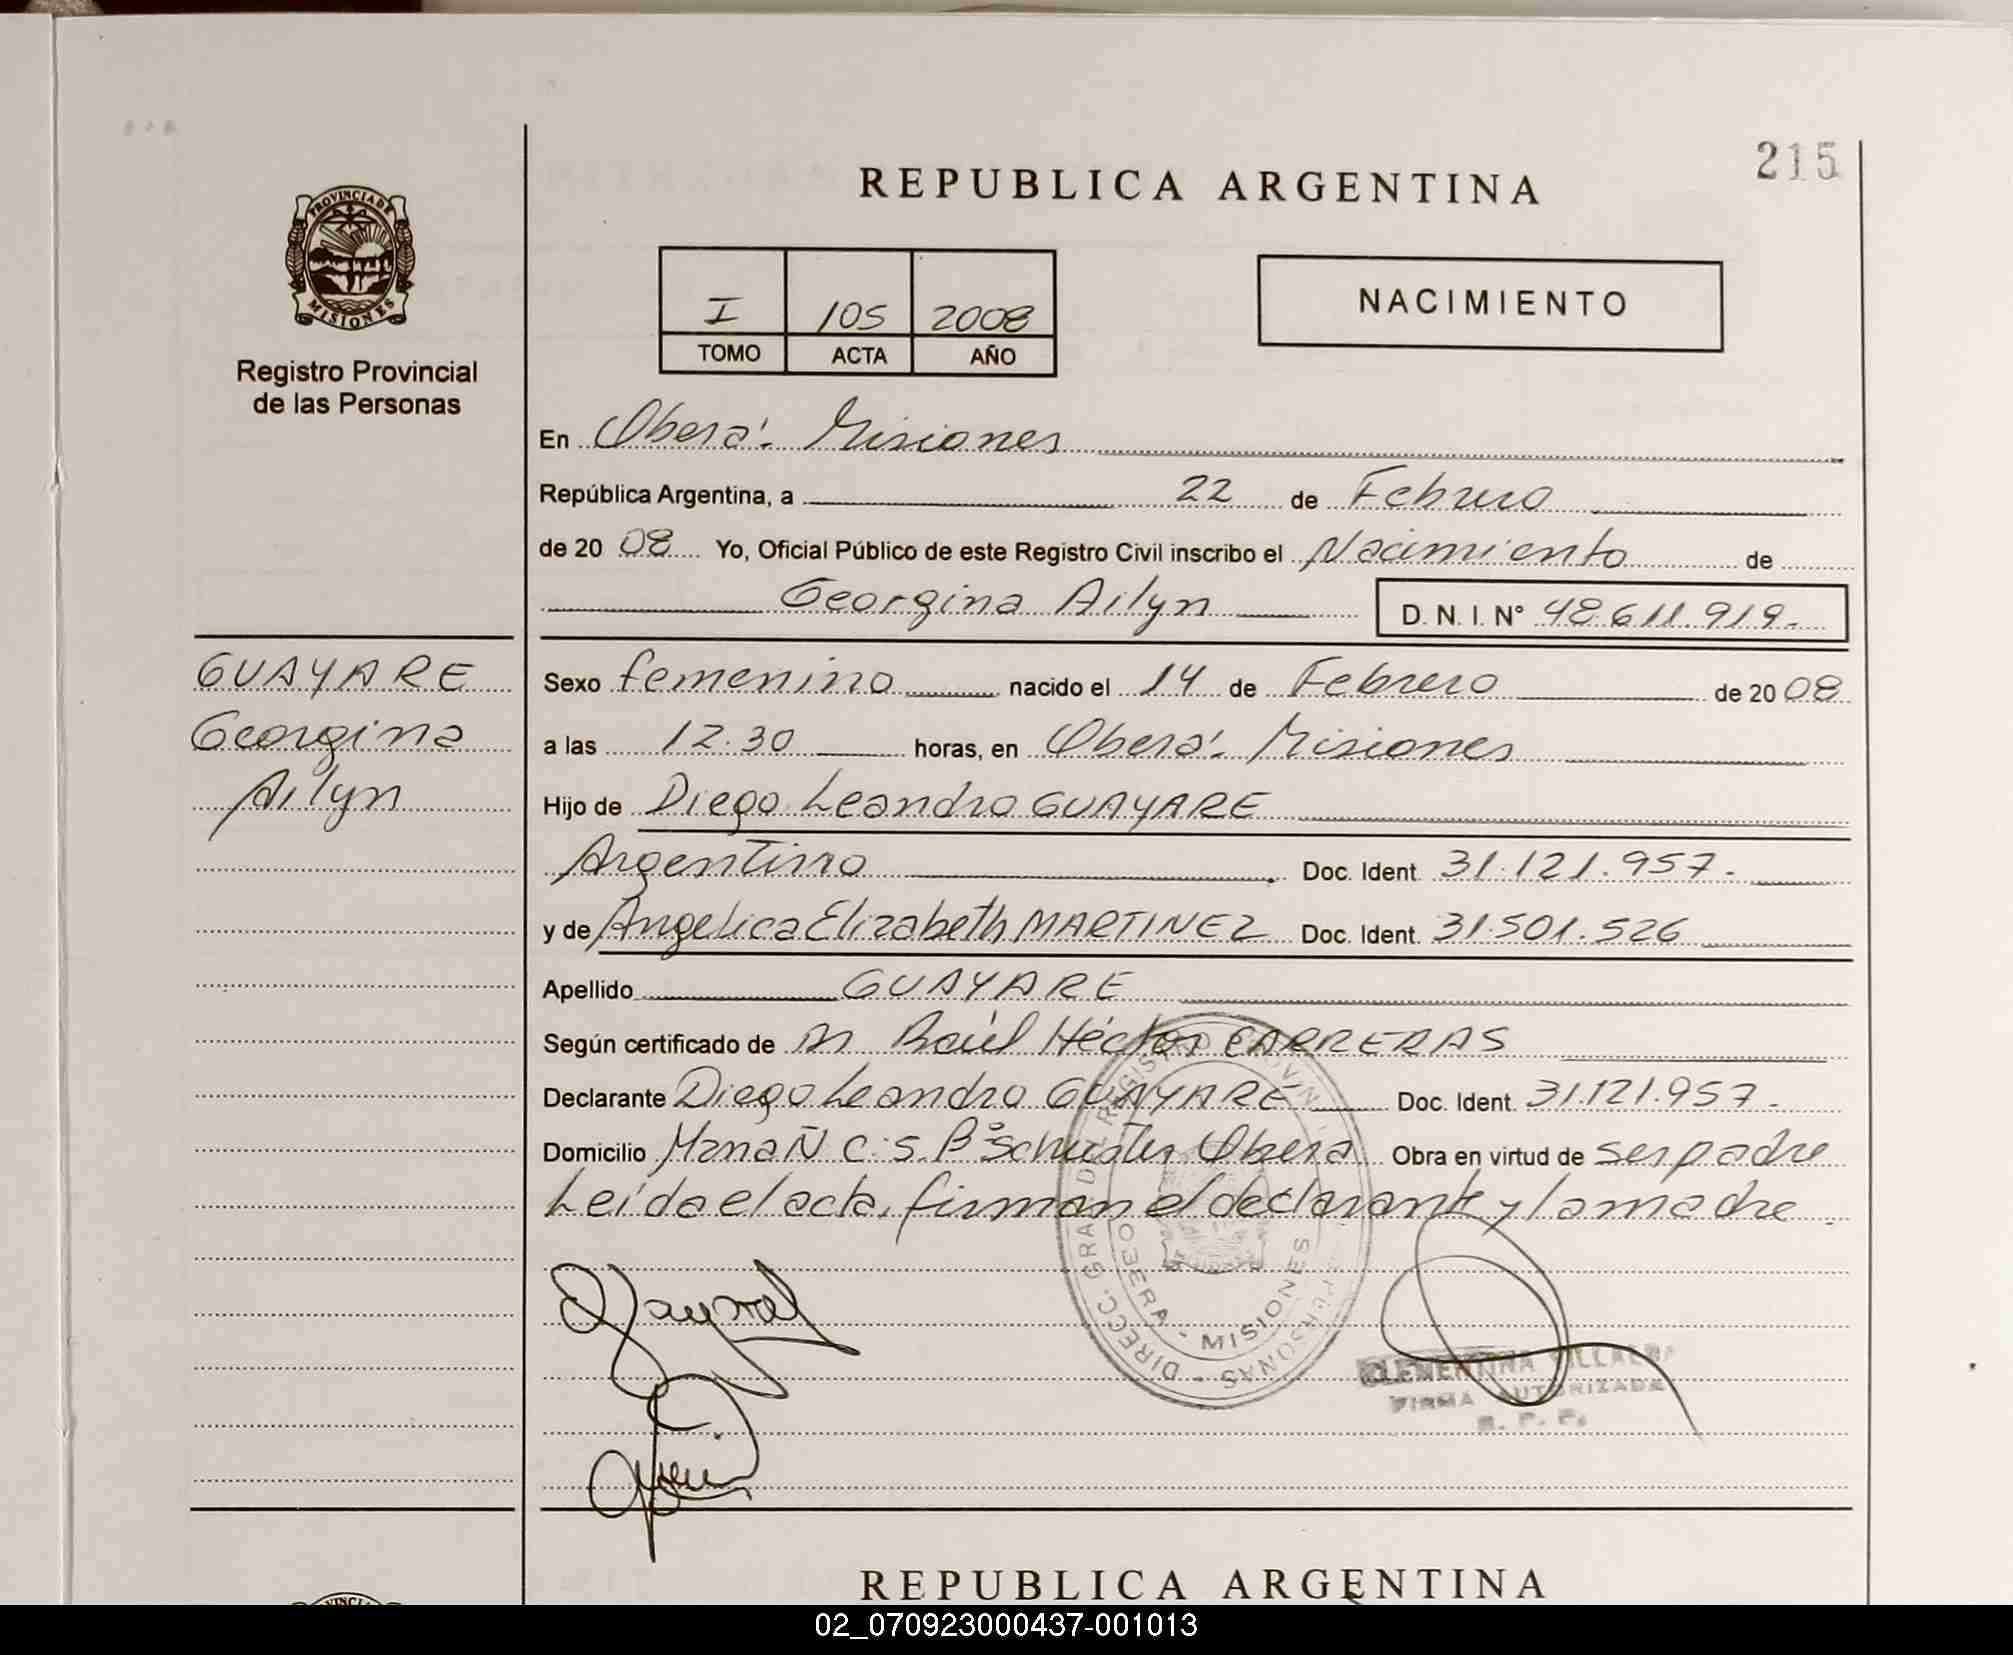 215
REPUBLICA ARGENTINA
PROVINCIA DE
MISIONES
Registro Provincial
de las Personas
I 105 2008
TOMO ACTA AÑO
NACIMIENTO
En Oberá. Misiones
República Argentina, a 22 de Febrero
de 2008 Yo, Oficial Público de este Registro Civil inscribo el Nacimiento de
Georgina Ailyn D.N.I. N° 48.611.919.
GUAYARE
Georgina
Ailyn
Sexo femenino nacido el 14 de Febrero de 2008
a las 12.30 horas, en Oberá. Misiones
Hijo de Diego Leandro GUAYARE
Argentino Doc. Ident. 31.121.957.
y de Angelica Elizabeth MARTINEZ Doc. Ident. 31.501.526
Apellido GUAYARE
Según certificado de Raúl Héctor CARRERAS
Declarante Diego Leandro GUAYARE Doc. Ident. 31.121.957.
Domicilio C.S. B° Oberá Obra en virtud de ser padre
Leída el acta, firman el declarante y la madre
DIRECC. GRAL. DEL REGISTRO PERSONAS
OBERA - MISIONES
CLEMENTINA VILLALBA
FIRMA AUTORIZADA
R. P. P.
REPUBLICA ARGENTINA
02_070923000437-001013